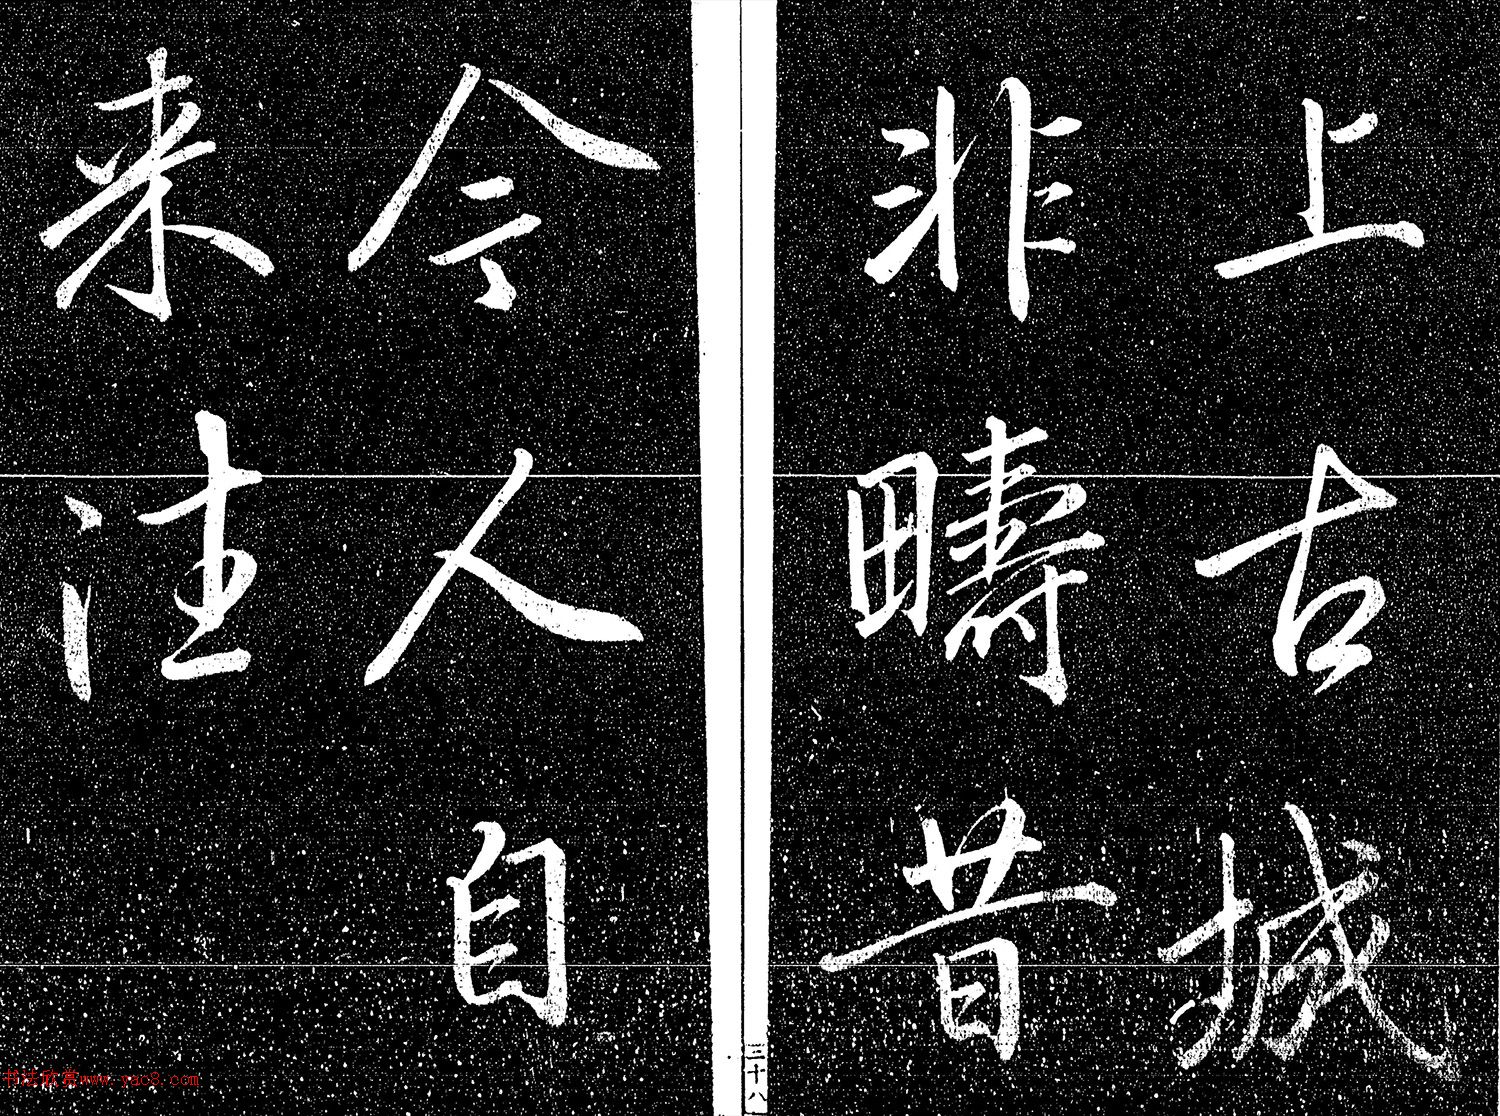 上古城
非疇昔
今人自
来往
三十八
书法欣赏www.yac8.com